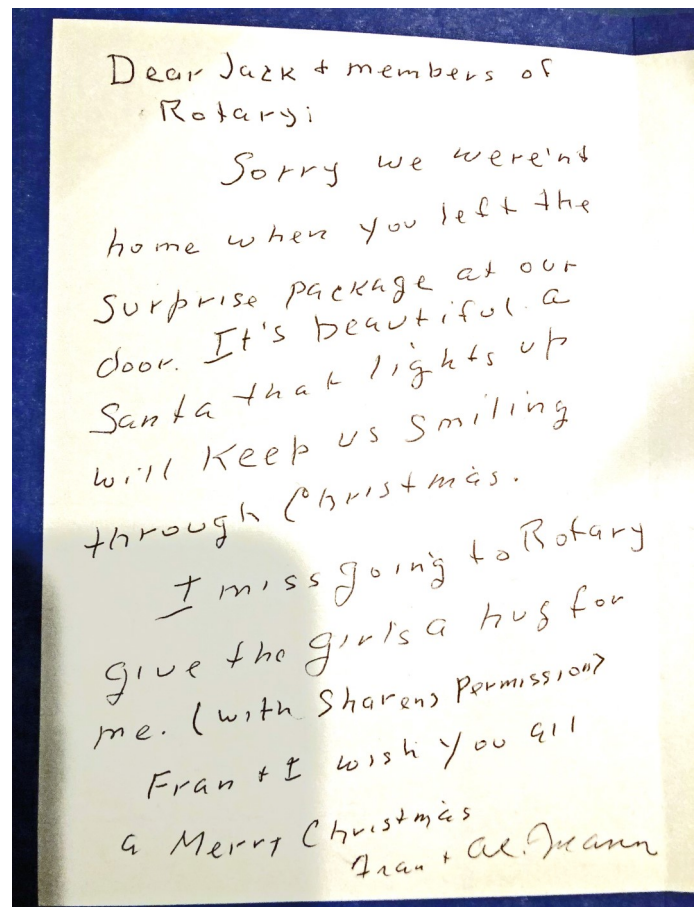 Dear Jack + members of
Rotary;
Sorry we were'nt
home when you left the
surprise package at our
door. It's beautiful. a
Santa that lights up
will keep us smiling
through Christmas.
I miss going to Rotary
give the girls a hug for
me. (with Sharens Permission)
Fran + I wish you all
a Merry Christmas
Fran + Al. Mann